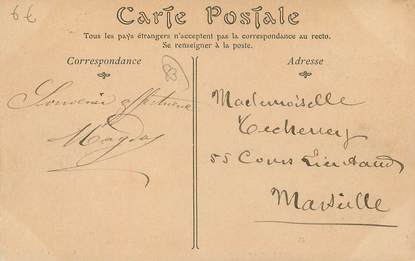 6€
Carte Postale
Tous les pays étrangers n'acceptent pas la correspondance au recto.
Se renseigner à la poste.
Correspondance
83
Adresse
Souvenir affectueux
Magda
Mademoiselle
55 Cours Lieutaud
Marseille